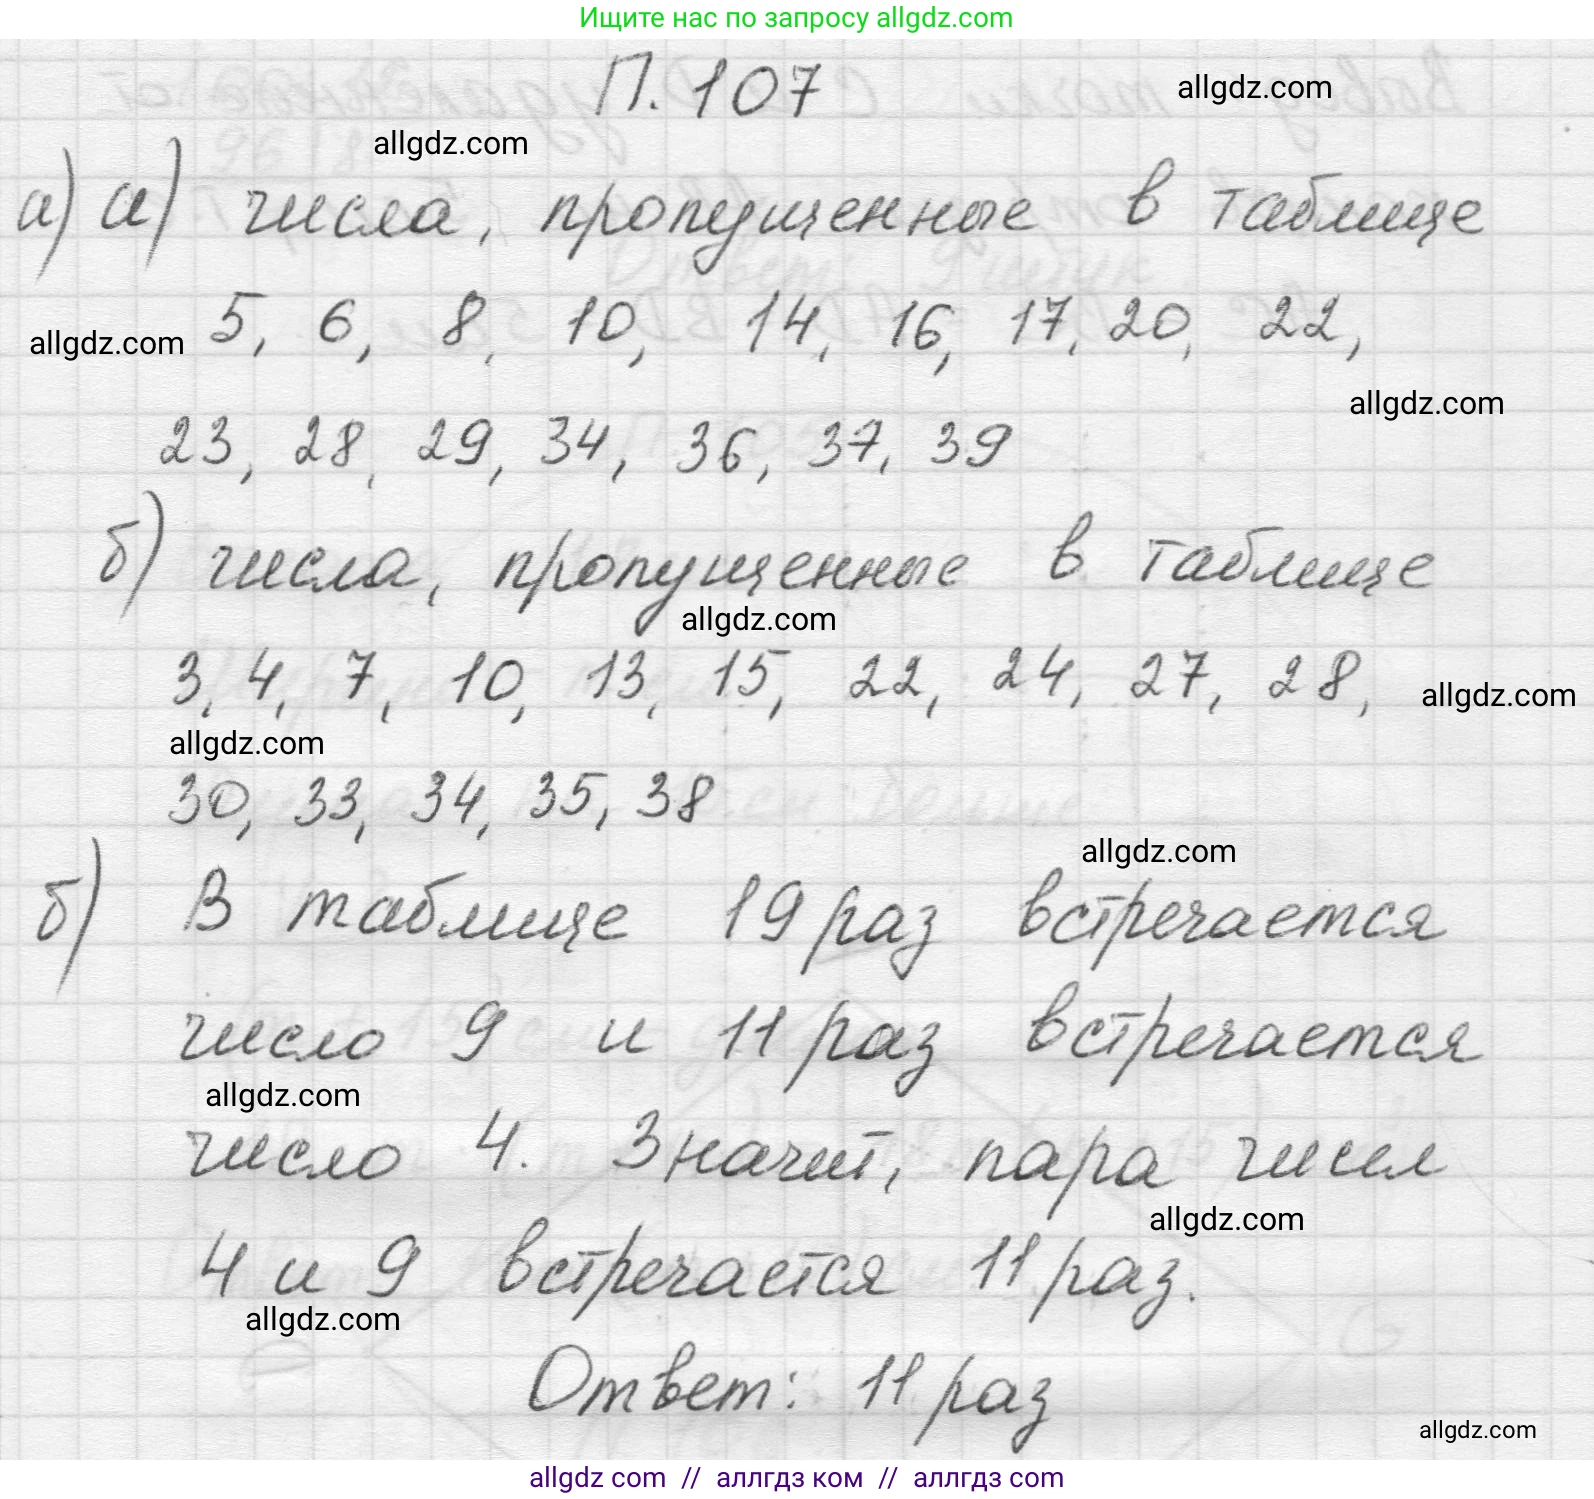 Ищите нас по запросу allgdz.com
П. 107
allgdz.com
allgdz.com
а) а) числа, пропущенные в таблице
5, 6, 8, 10, 14, 16, 17, 20, 22,
allgdz.com
allgdz.com
23, 28, 29, 34, 36, 37, 39
б) числа, пропущенные в таблице
allgdz.com
3, 4, 7, 10, 13, 15, 22, 24, 27, 28,
allgdz.com
allgdz.com
30, 33, 34, 35, 38
allgdz.com
б) В таблице 19 раз встречается
число 9 и 11 раз встречается
allgdz.com
число 4. Значит, пара чисел
allgdz.com
4 и 9 встречается 11 раз.
allgdz.com
Ответ: 11 раз
allgdz.com
allgdz.com // аллгдз ком // аллгдз.com